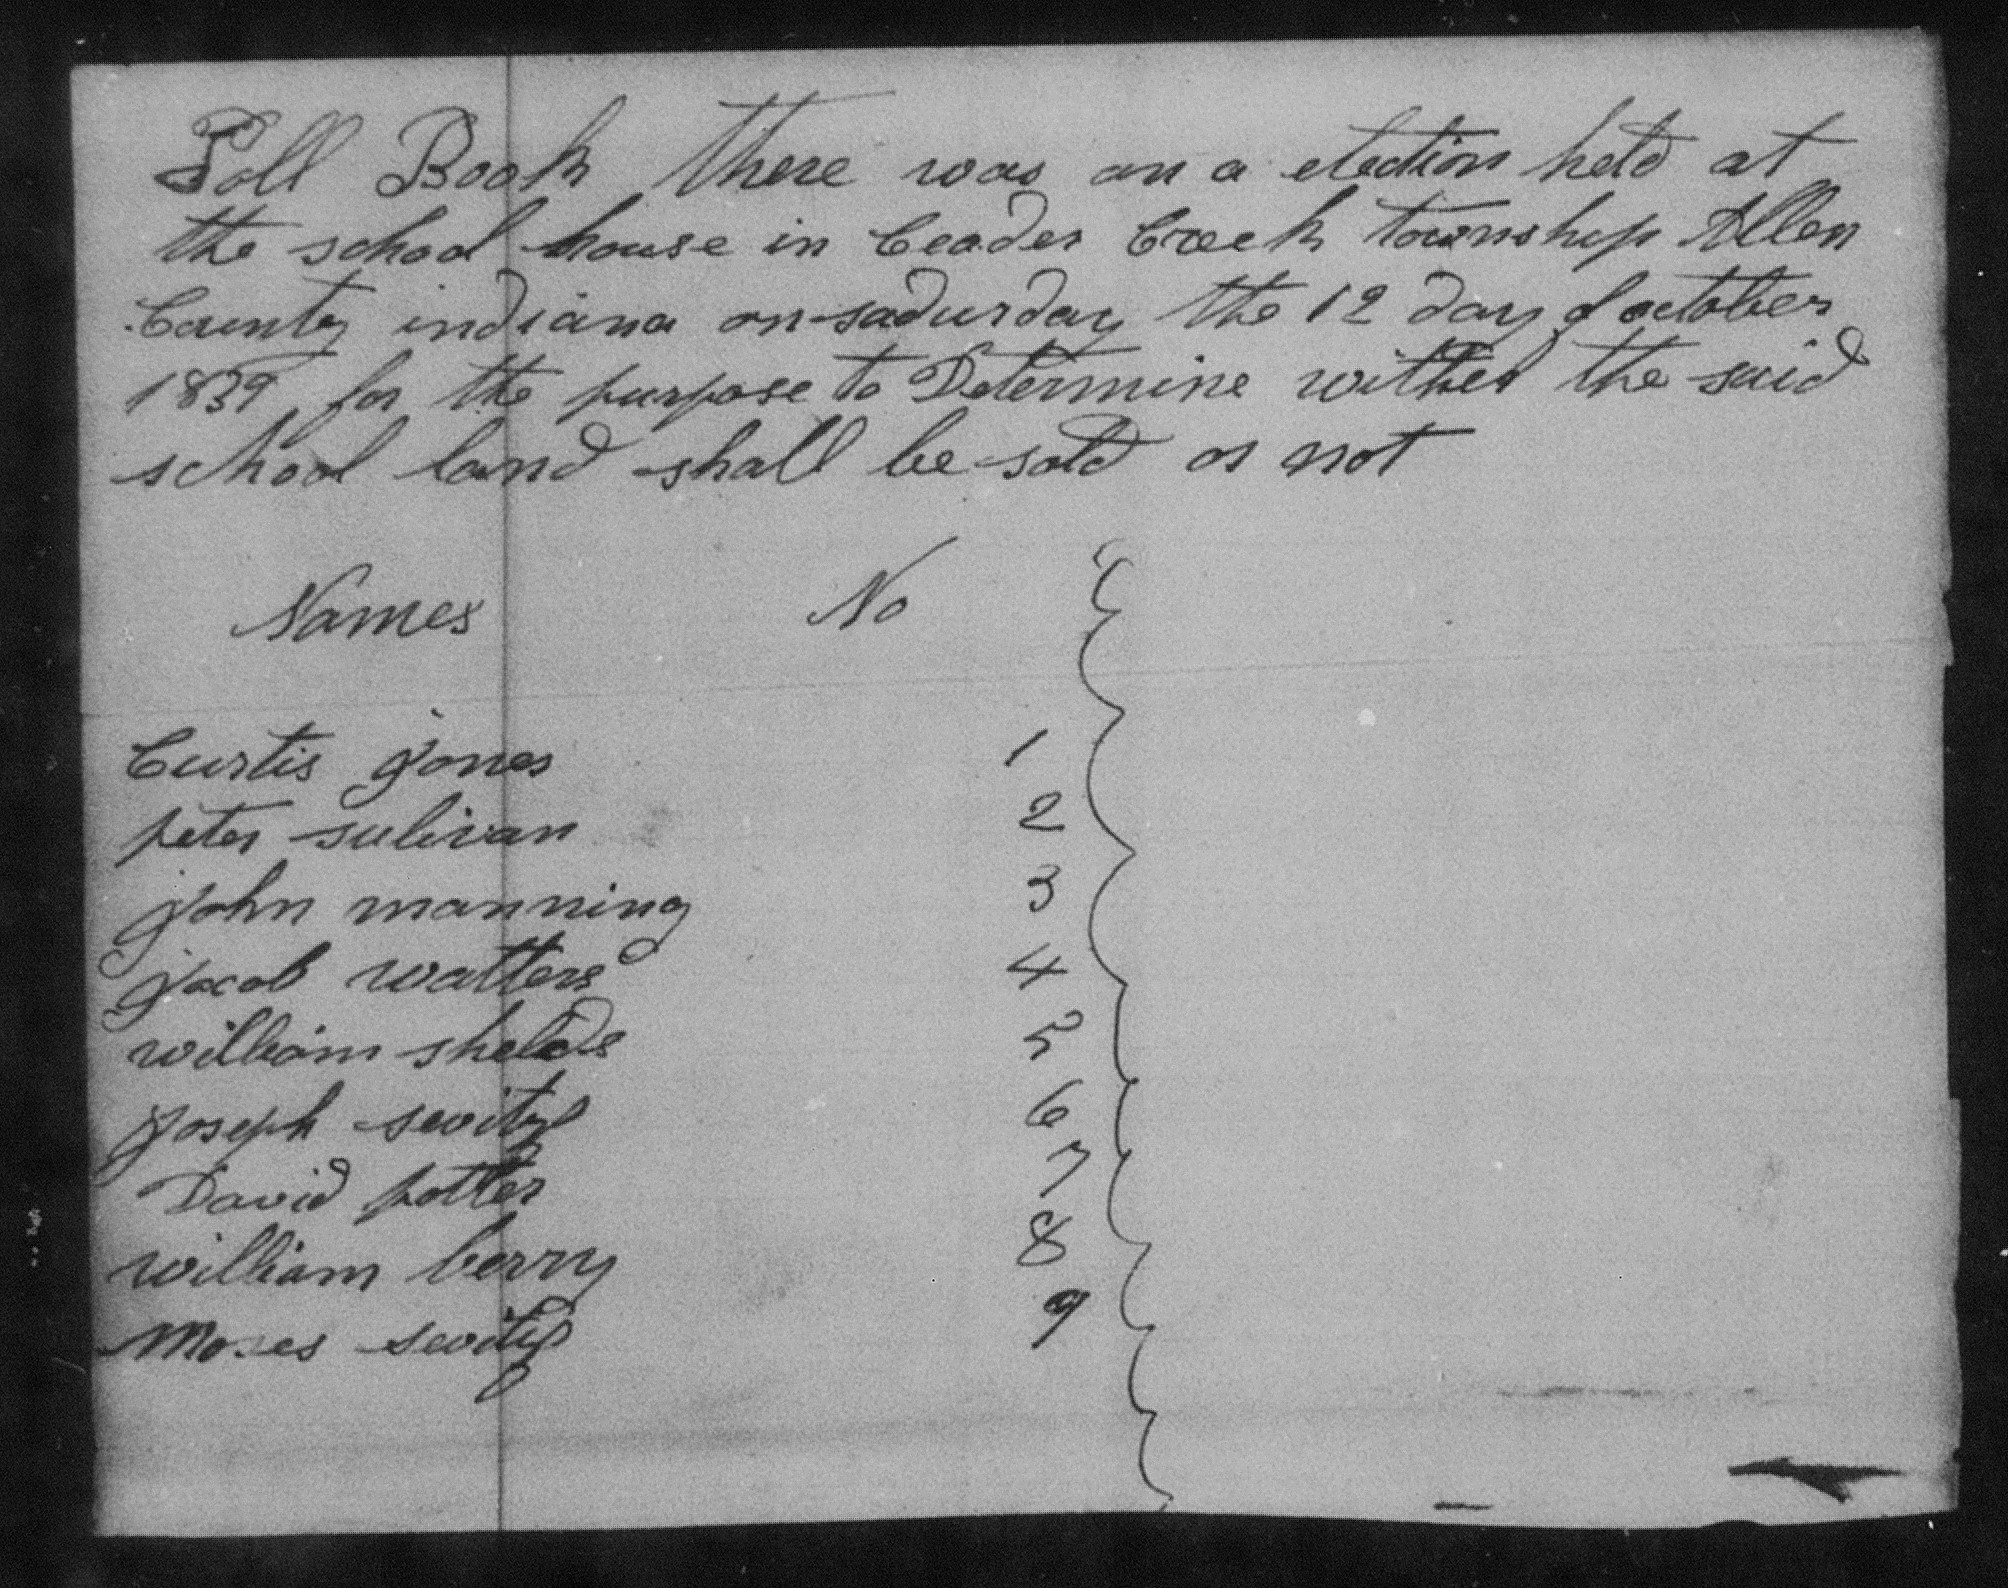 Poll Book There was an a election held at
the school house in Ceader Creek township Allen
County indiana on sadurday the 12 day of october
1839 for the purpose to Determine wither the said
school land shall be sold or not
Names No
Curtis jones 1
peter sulivan 2
john manning 3
jacob watters 4
william shelds 5
joseph 6
David potter 7
william berry 8
Moses 9